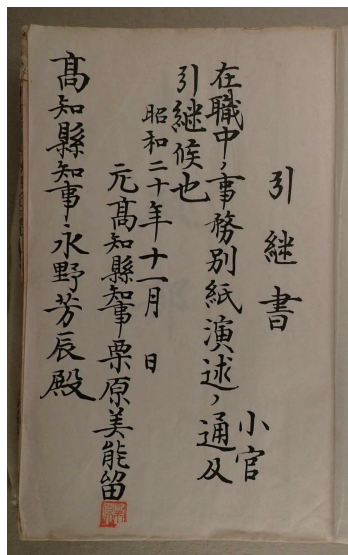 引継書
小官
在職中ノ事務別紙演述ノ通及
引継候也
昭和二十年十一月　日
元髙知縣知事栗原美能留
髙知縣知事永野芳辰殿